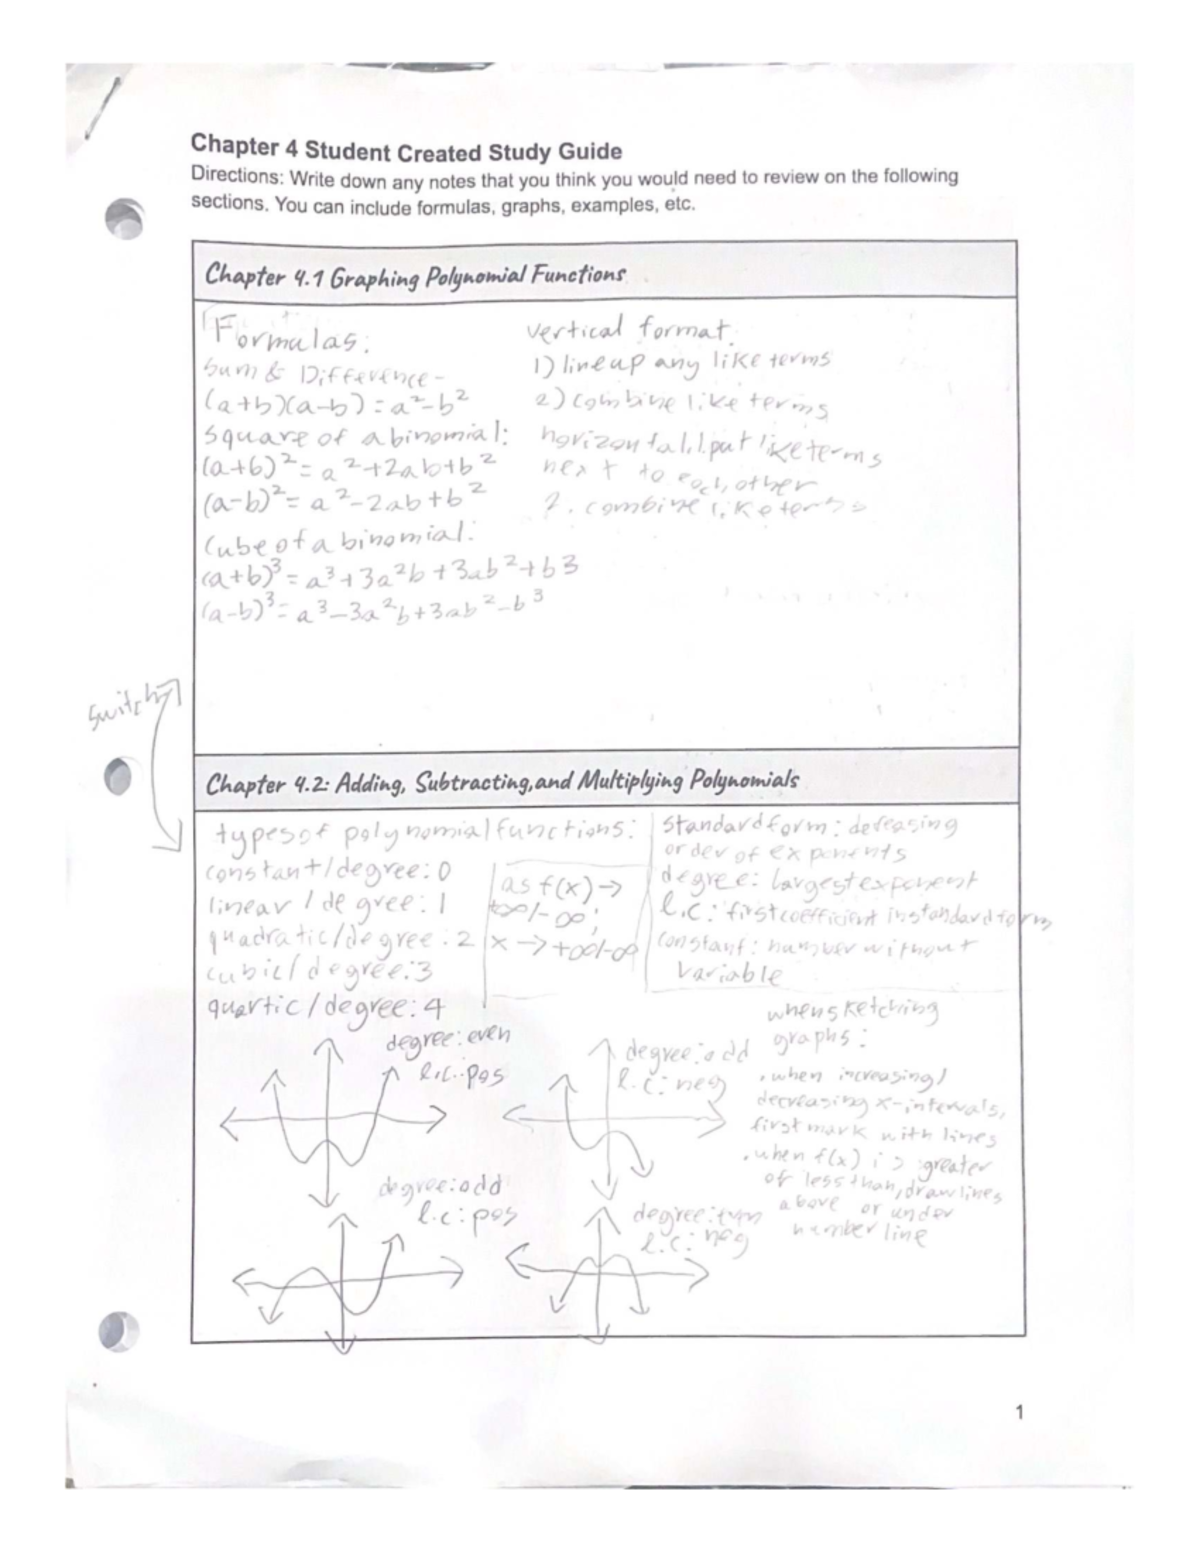 Chapter 4 Student Created Study Guide
Directions: Write down any notes that you think you would need to review on the following
sections. You can include formulas, graphs, examples, etc.
Chapter 4.1 Graphing Polynomial Functions
Formulas:
Sum & Difference-
(a+b)(a-b)=a²-b²
square of a binomial:
(a+b)²=a²+2ab+b²
(a-b)²=a²-2ab+b²
Cube of a binomial:
(a+b)³=a³+3a²b+3ab²+b3
(a-b)³=a³-3a²b+3ab²-b³
vertical format:
1) line up any like terms
2) combine like terms
horizontal: 1. put like terms
next to each other
2. combine like terms
switch
Chapter 4.2: Adding, Subtracting,and Multiplying Polynomials
types of polynomial functions:
constant/degree: 0
linear / degree: 1
quadratic/degree: 2
cubic/degree: 3
quartic/degree: 4
as f(x) →
+∞/-∞;
x → +∞/-∞
standard form: defeasing
order of exponents
degree: largest exponent
l.c: first coefficient in standard form
constant: number without
variable
degree: even
l.c: pos
degree: odd
l.c: neg
degree: odd
l.c: pos
degree: even
l.c: neg
when sketching
graphs:
. when increasing/
decreasing x-intervals,
first mark with lines
. when f(x) is greater
or less than, draw lines
above or under
number line
1